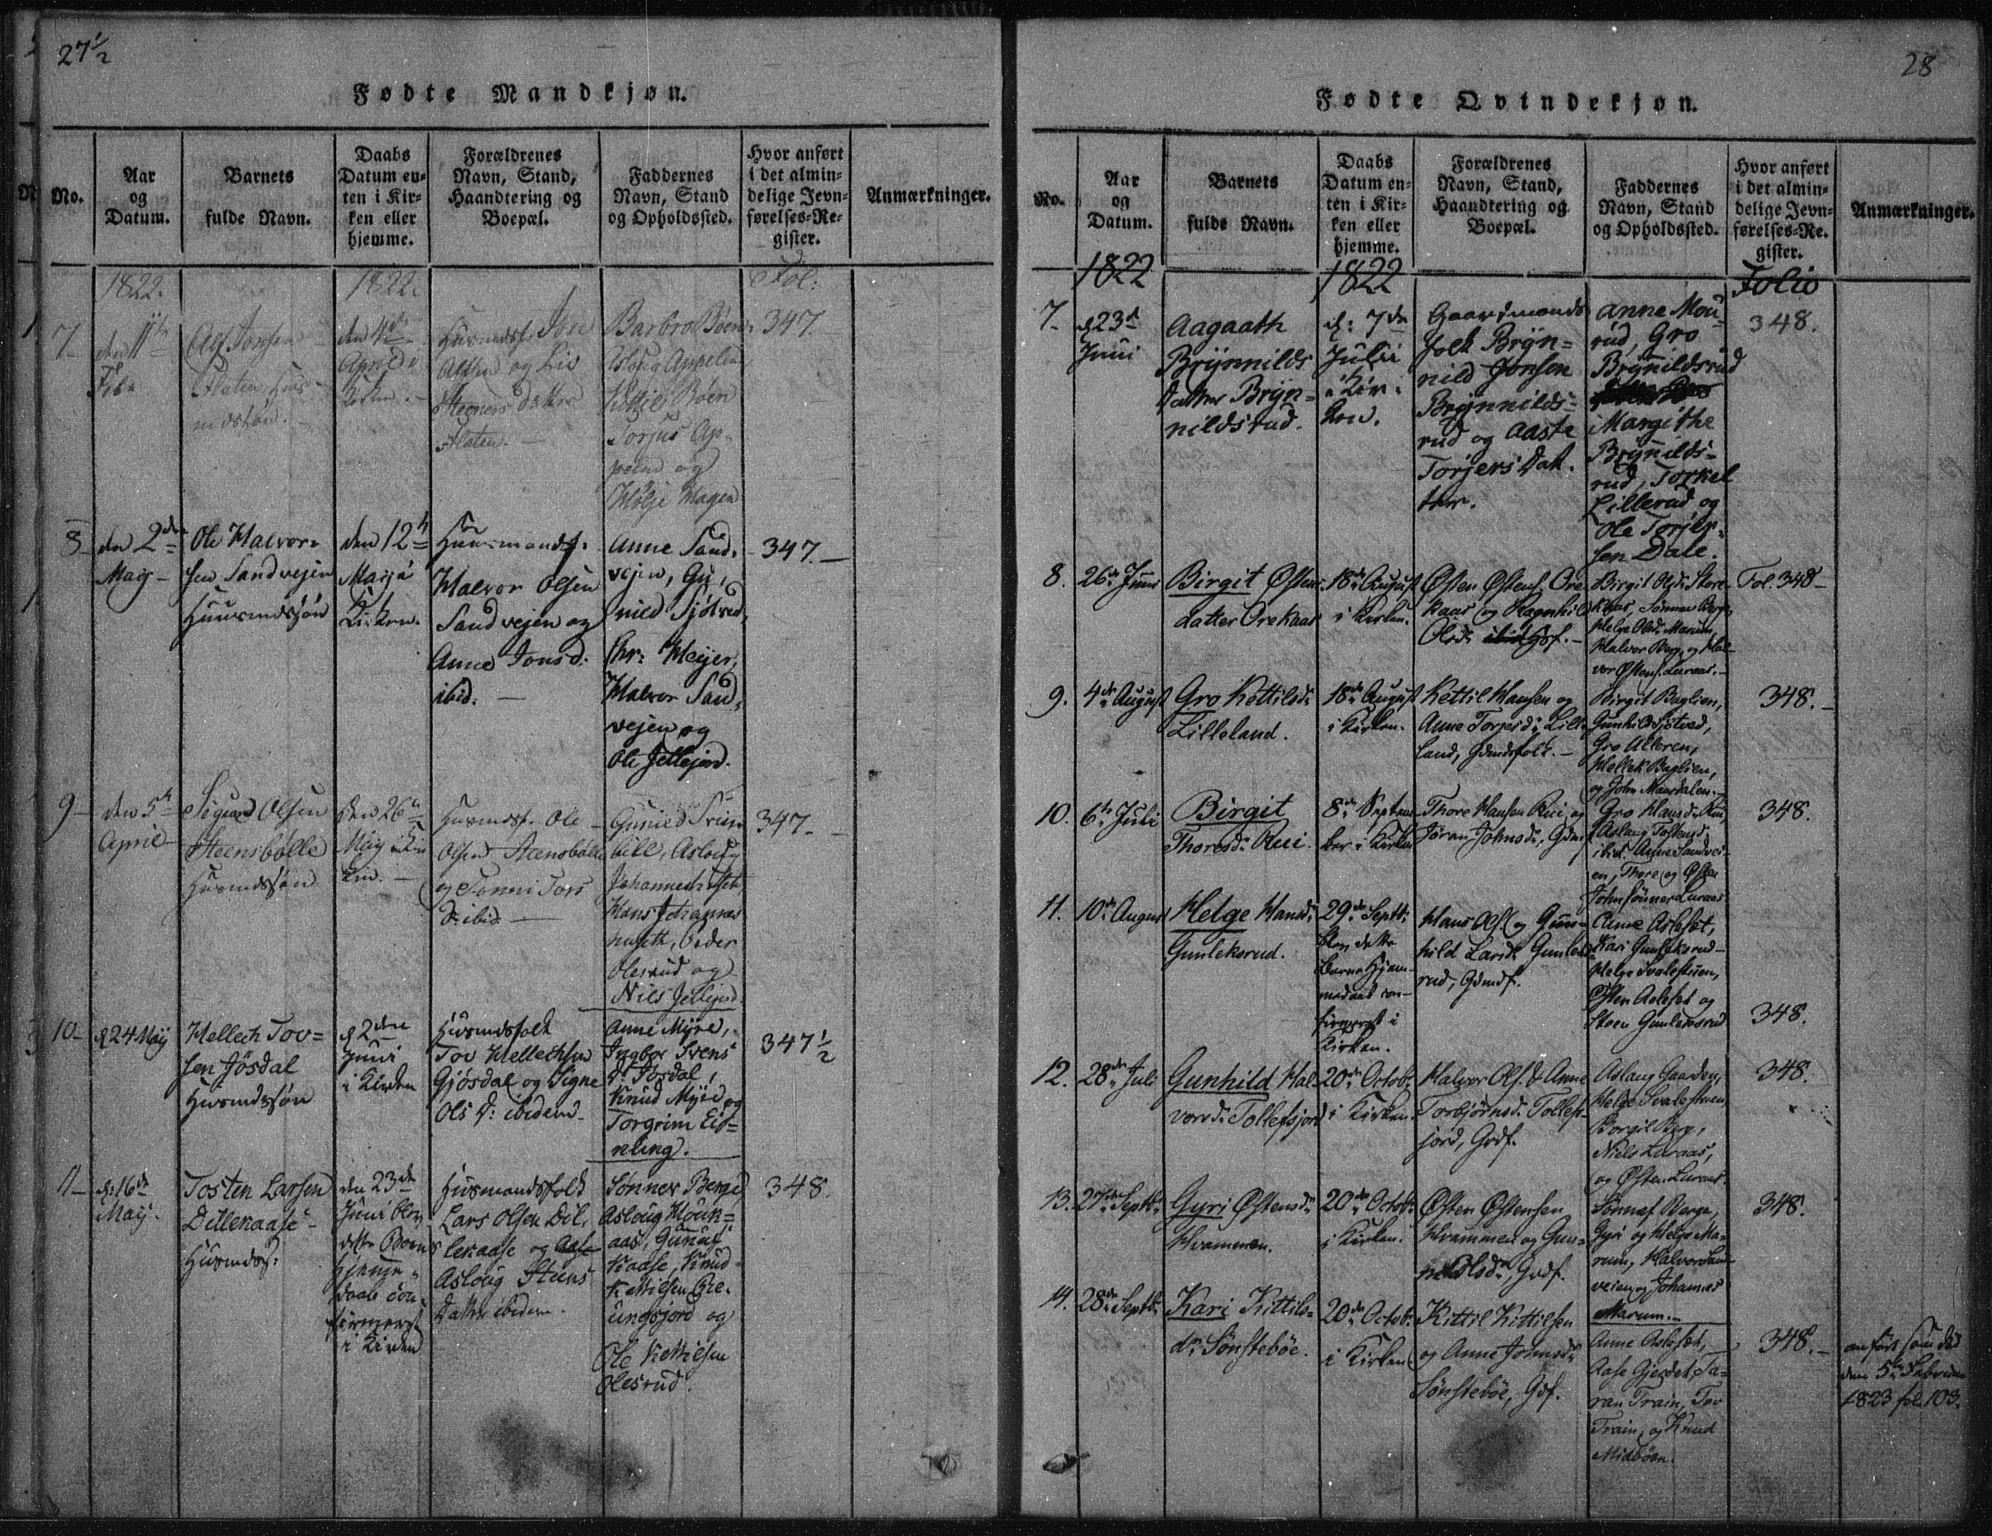 27½
Fødte Mandkjøn.
No.
Aar
og
Datum.
Barnets
fulde Navn.
Daabs
Datum en-
ten i Kir-
ken eller
hjemme.
Forældrenes
Navn, Stand,
Haandtering og
Boepæl.
Faddernes
Navn, Stand
og Opholdssted.
Hvor anført
i det almin-
delige Jevn-
førelses-Re-
gister.
Anmærkninger.
1822.
1822.
Fol:
7
den 11te
Febr
Alf Jonsen
Flaten, Huus-
mdssøn.
den 4de
April i
Kirken.
Huusmdsf. Jon
Alfsen og Liv
Flaten.
Barbro Bøen
Asloug
Kittil Bøen
Torjus Ap-
og
347
8
den 2den
May
Ole Halvor-
sen Sandvejen
Huusmdssøn
den 12te
May i
Kirken.
Huusmandsf.
Halvor Olsen
Sandvejen og
Anne Jonsd.
ibid.
Anne Sand-
vejen, Gu-
nild Sjøtved,
Chr: Meyer,
Halvor Sand-
vejen og
Ole Jellejord.
347.
9
den 5te
April
Sigurd Olsen
Steensbølle
Huusmdssøn
Den 26de
May i Kir-
ken.
Huusmdsf. Ole
Olsen Steensbølle
og Tonni Tors
D. ibid
Gunild
Asloug
Hans Johannes
Peder
Olesrud og
Nils Jellejord.
347.
10
d 24 May
Hellech Tov-
sen Jøsdal
Husmdssøn
d 2den
Juni
i Kirken
Husmdsfolk
Tov Hellechsen
Gjøsdal og Signe
Ols D: ibidem.
Anne Myre,
Ingbor Svens
D. Josdal,
Knud Myre og
Torgrim Eid-
nling.
347½
11
d: 16de
May.
Tosten Larsen
Dillekaase
Husmdss:
den 23de
Juni blev
dette Barns
hjemme-
daab con-
firmeret
i Kirken
Husmandsfolk
Lars Olsen Dil-
lekaase og Aase
Asloug Steens
Datter ibidem.
Sønnev Berge
Asloug Houk-
aas, Gunuf
Kaase, Knud
Kettilsen Gre-
ungsjord og
Ole Kettilsen
Olesrud.
348.
28
Fødte Qvindekjøn.
No.
Aar
og
Datum.
Barnets
fulde Navn.
Daabs
Datum en-
ten i Kir-
ken eller
hjemme.
Forældrenes
Navn, Stand,
Haandtering og
Boepæl.
Faddernes
Navn, Stand
og Opholdssted.
Hvor anført
i det almin-
delige Jevn-
førelses-Re-
gister.
Anmærkninger.
1822
1822
Folio
7.
d 23d
Juni
Aagaath
Brynnilds
Datter Bryn-
nildsrud.
d: 7de
Julii
i Kir-
ken.
Gaardmands
folk Bryn-
nild Jonsen
Brynnilds-
rud og Aaste
Torjers Dat-
ter.
Anne Mou-
rud, Gro
Brynildsrud
Margithe
Brynilds-
rud, Torkel
Lillerud og
Ole Torjer-
sen Dale.
348.
8.
26de Juni
Birgit Østens-
datter Orekaas
18de August
i Kirken.
Østen Østens. Ore-
kaas og Ragnhild
Olsd. ibid Gdf.
Birgit Olsd. Store-
kaas, Sønnev Berge,
Helge Olsd. Marum,
Halvor Berg, og Hal-
vor Østens. Luraas.
Fol. 348
9.
4de August
Gro Kettilsd.
Lilleland.
18de August
i Kirken.
Kettil Hansen og
Anne Torjesd. Lille-
land, Gdmdsfolk.
Birgit Baglien,
Gunhild Sjøtved,
Gro Alleren,
Hellek Baglien,
og John Maurdalen.
348.
10.
6te Juli
Birgit
Thoresd. Rui.
8de Septem-
ber i Kirken
Thore Hansen Rui og
Jøran Johnsd., Gdmf
Gro Hansd. Rui
Aslaug Tostensd.
ibid. Anne Sandvei-
en, Thore og Østen
Johnsønner Luraas
348.
11.
10de August
Helge Hansd.
Gunleksrud.
29de Septb.
blev dette
Barns Hjem-
medaab con-
firmeret i
Kirken.
Hans Olss. og Gun-
hild Larsd. Gunleks-
rud, Gdmdf.
Anne Aslefet,
Kari Gunleksrud
Helge Svalestuen,
Østen Aslefet og
Steen Gunleksrud
348.
12.
28de Juli
Gunhild Hal-
vorsd. Tollefsjord
20de Octob.
i Kirken.
Halvor Ols. & Anne
Torbjørnsd. Tollefs-
jord, Grdf.
Aslaug Gaarden,
Helge Svalestuen,
Borgil Berg,
Niels Luraas,
og Østen Luraas.
348.
13.
27de Septb.
Gyri Østensd.
Hvammen.
20de Octob.
i Kirken.
Østen Østensen
Hvammen og Gun-
nild Olsd., Grdf.
Sønnef Berge,
Gyri og Helge Ma-
rum, Halvor Sand-
veien og Johannes
Marum.
348.
14.
28de Septb.
Kari Kittils-
dr. Sønstebøe.
20de Octob.
i Kirken
Kittil Kittilsen
og Anne Johnsd.
Sønstebøe, Gdf.
Anne Aslefet,
Aase Gjerdet, Ta-
ran Train, Tov
Train, og Knud
Midbøen.
348.
anført som død
den 5te Februar
1823 fol. 103.